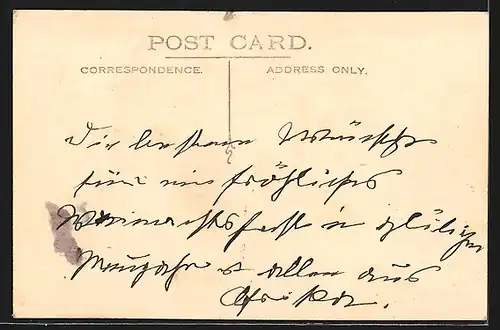 POST CARD.
CORRESPONDENCE. ADDRESS ONLY.
Die besten Wünsche
für ein fröhliches
Weihnachtsfest u. glückliches
Neujahr allen aus
Afrika.